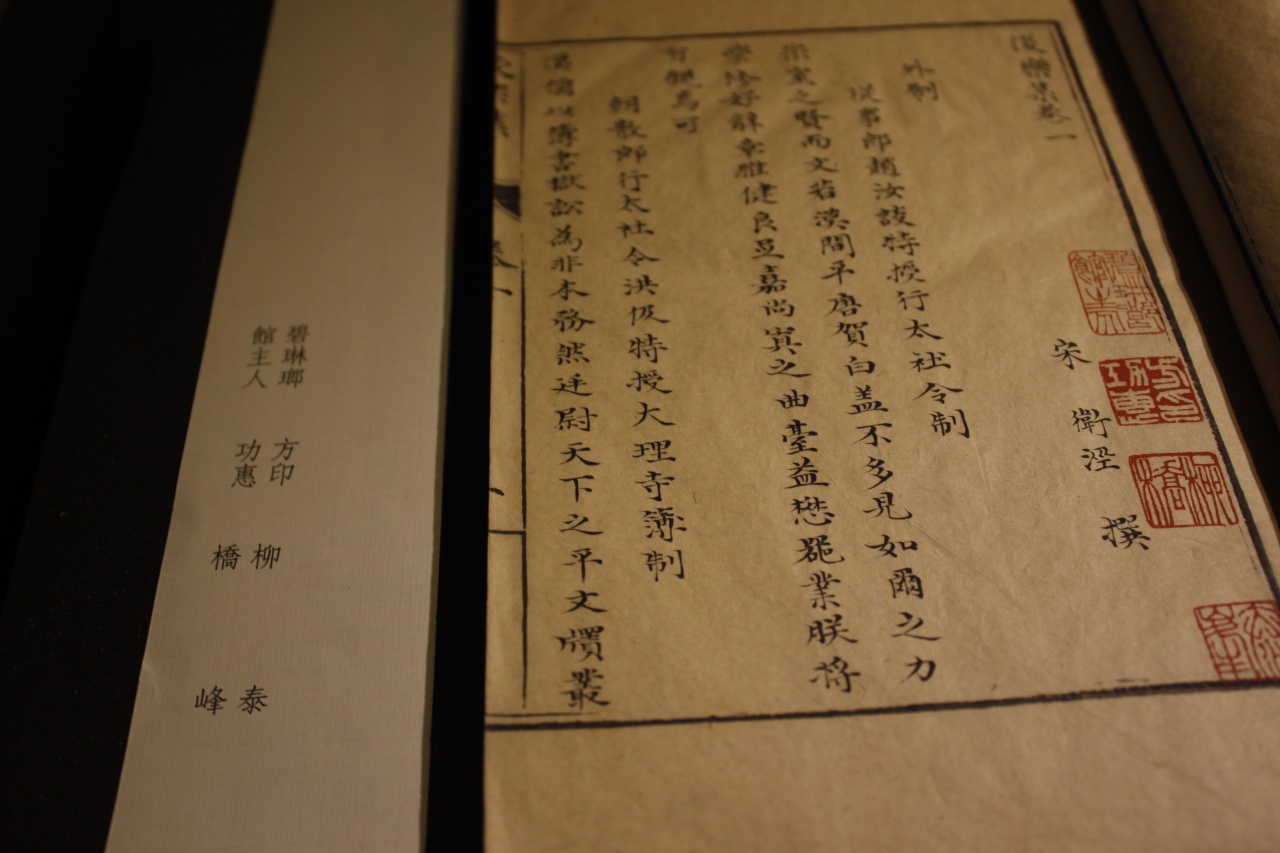 後樂集卷一
宋 衛涇 撰
外制
從事郎趙汝談特授行太社令制
宗室之賢而文若漢間平唐賀白蓋不多見如爾之力
學修好辭章雅健良足嘉尚寘之曲臺益懋器業朕將
有觀焉可
朝散郎行太社令洪伋特授大理寺簿制
漢儒以簿書獄訟為非本務然廷尉天下之平文牘叢
碧琳瑯
館主人
方印
功惠
柳橋
泰峰
碧琳瑯
館主人
方印
功惠
柳橋
泰峰